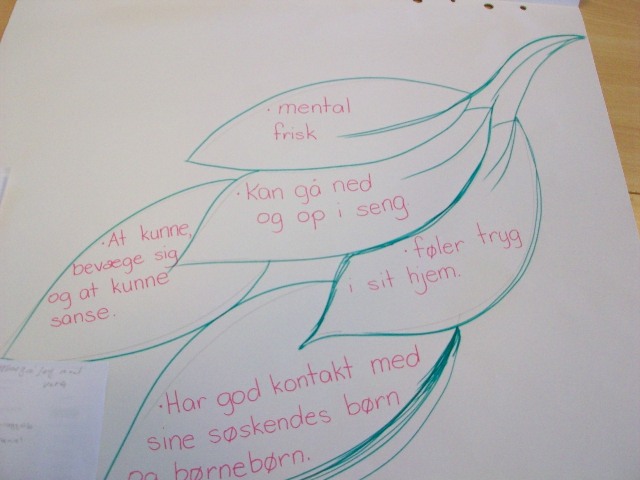 · mental
frisk
· Kan gå ned
og op i seng
· At kunne,
bevæge sig
og at kunne
sanse.
· føler tryg
i sit hjem.
· Har god kontakt med
sine søskendes børn
og børnebørn.